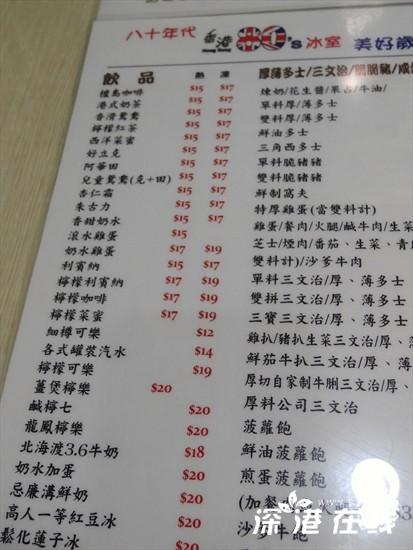 八十年代 香港80's冰室 美好歲
飲品 熱 凍
檀島咖啡 $15 $17
港式奶茶 $15 $17
香滑鴛鴦 $15 $17
檸檬紅茶 $15 $17
西洋菜蜜 $15 $17
好立克 $15 $17
阿華田 $15 $17
兒童鴛鴦(克+田) $15 $17
杏仁霜 $15 $17
朱古力 $15 $17
香甜奶水 $15 $17
滾水雞蛋 $15
奶水雞蛋 $17 $19
利賓納 $15 $17
檸檬利賓納 $17 $19
檸檬咖啡 $17 $19
檸檬菜蜜 $17 $19
細樽可樂 $12
各式罐裝汽水 $14
檸檬可樂 $19
薑煲檸樂 $20
鹹檸七 $20
龍鳳檸樂 $20
北海渡3.6牛奶 $18
奶水加蛋 $20
忌廉溝鮮奶 $20
高人一等紅豆冰 $20
鬆化蓮子冰 $20
厚薄多士/三文治/脆脆豬/
煉奶/花生醬/果占/牛油/
單料厚/薄多士
雙料厚/薄多士
鮮油多士
三角西多士
單料脆豬豬
雙料脆豬豬
鮮制窩夫
特厚雞蛋(當雙料計)
雞蛋/餐肉/火腿/鹹牛肉/生菜
芝士/煙肉/番茄、生菜、青
雙料計)/沙爹牛肉
單料三文治/厚、薄多士
雙拼三文治/厚、薄多士
三寶三文治/厚、薄多士
雞扒/豬扒生菜三文治/厚、
鮮茄牛扒三文治/厚、薄
厚切自家制牛脷三文治/
厚料公司三文治
菠蘿飽
鮮油菠蘿飽
煎蛋菠蘿飽
(加餐
沙爹牛飽
深港在线